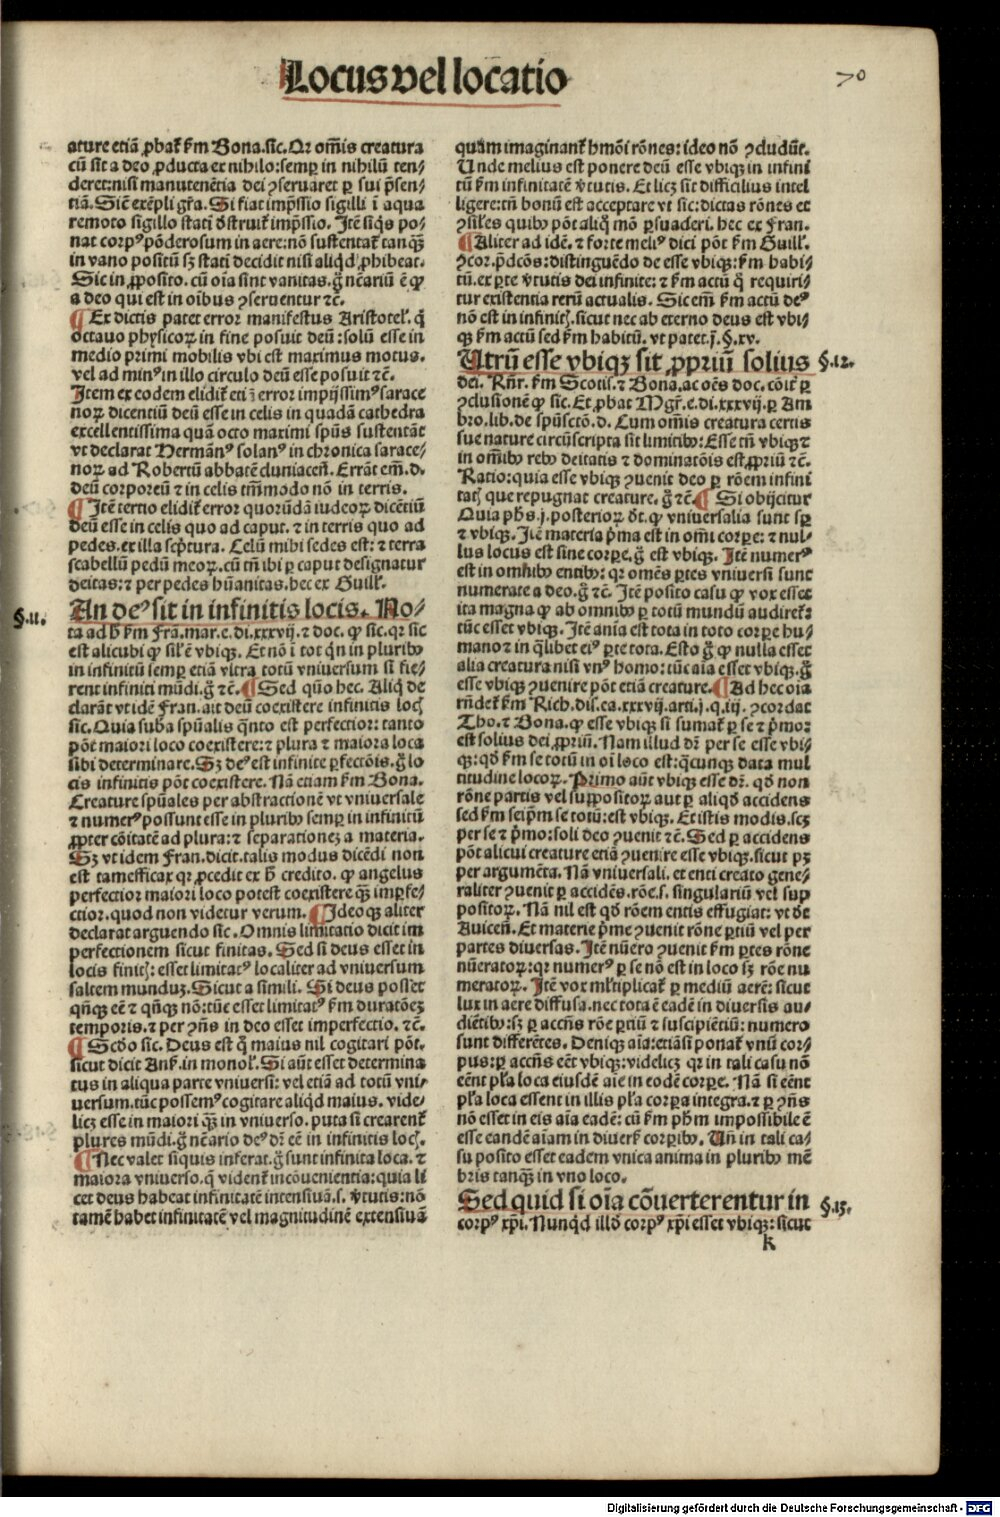 Locus vel locatio
70
ature etiā ꝓbat᷑ ẜm Bona. sic. Qꝛ om̄is creatura
cū sit a deo ꝓducta ex nihilo: semꝑ in nihilū ten⸗
deret: nisi manutenētia dei ꝯseruaret ꝑ sui p̄sen⸗
tiā. Siē exēpli gr̄a. Si fiat imp̄ssio sigilli ī aqua
remoto sigillo stati dstruit᷑ imp̄ssio. Itē siq̄s po⸗
nat corpꝰ pōderosum in aere: nō sustentat᷑ tanqȝ̄
in vano positū sȝ stati decidit nisi aliqd ꝓhibeat.
Sic in ꝓposito. cū oīa sint vanitas. g̊ nēariū ē ꝙ
a deo qui est in oībus ꝯseruentur ⁊c̄.
¶ Ex dictis patet error manifestus Aristotel᷑. q̇
octauo physicoꝝ in fine posuit deū: solū esse in
medio primi mobilis vbi est maximus motus.
vel ad minꝰ in illo circulo deū esse posuit ⁊c̄.
Item ex eodem elidit᷑ eti ī error impijssimꝰ sarace
noꝝ dicentiū deū esse in celis in quadā cathedra
excellentissima quā octo maximi spūs sustentāt
vt declarat Hermānꝰ solanꝰ in chronica sarace⸗
noꝝ ad Robertū abbatē cluniaceñ. Errāt em̄. d.
deū corporeū ⁊ in celis tm̄modo nō in terris.
¶ Itē tertio elidit᷑ error quorūdā iudeoꝝ dicētiū
deū esse in celis quo ad caput. ⁊ in terris quo ad
pedes. ex illa scp̄tura. Celū mihi sedes est: ⁊ terra
scabellū pedū meoꝝ. cū tn̄ ibi ꝑ caput designatur
deitas: ⁊ per pedes hūanitas. hec ex Guill᷑.
§.11.
An deꝰ sit in infinitis locis. No⸗
ta ad h̄ ẜm Fra. mar. e. di. xxxvij. ⁊ doc. ꝙ sic. qꝛ sic
est alicubi ꝙ sil᷑e vbiqȝ. Et nō ī tot qn̄ in pluribꝰ
in infinitū semꝑ etiā vltra totū vniuersum si fie⸗
rent infiniti mūdi. g̊ ⁊c̄. ¶ Sed quō hec. Aliq̇ de
clarāt vt idē Fran. ait deū coexistere infinitis locꝭ
sic. Quia suba spūalis qn̄to est perfectior: tanto
pōt maiori loco coexistere: ⁊ plura ⁊ maiora loca
sibi determinare. Sȝ deꝰ est infinite ꝑfectōis. g̊ lo
cis infinitis pōt coexistere. Nā etiam ẜm Bona.
Creature spūales per abstractionē vt vniuersale
⁊ numerꝰ possunt esse in pluribꝰ semꝑ in infinitū
ꝓpter cōitatē ad plura: ⁊ separationeȝ a materia.
Sȝ vt idem Fran. dicit. talis modus dicēdi non
est tam efficax qꝛ ꝓcedit ex h̄ credito. ꝙ angelus
perfectior maiori loco potest coexistere qȝ̄ imꝑfe⸗
ctior. quod non videtur verum. ¶ Ideoqȝ aliter
declarat arguendo sic. Omnis limitatio dicit im
perfectionem sicut finitas. Sed si deus esset in
locis finitꝭ: esset limitatꝰ localiter ad vniuersum
saltem munduȝ. Sicut a simili. Si deus posset
qn̄qȝ eē ⁊ qn̄qȝ nō: tūc esset limitatꝰ ẜm duratōeȝ
temporis. ⁊ per ꝯn̄s in deo esset imperfectio. ⁊c̄.
¶ Scdo sic. Deus est q̄ maius nil cogitari pōt.
sicut dicit Ans᷑. in monol᷑. Si aūt esset determina
tus in aliqua parte vniuersi: vel etiā ad totū vni⸗
uersum. tūc possemꝰ cogitare aliqd maius. vide⸗
licȝ esse in maiori qȝ̄ in vniuerso. puta si crearent᷑
plures mūdi. g̊ nēario deꝰ dȝ eē in infinitis locꝭ.
¶ Nec valet si quis inferat. g̊ sunt infinita loca. ⁊
maiora vniuerso. q̇ vident᷑ incōuenientia: quia li
cet deus habeat infinitatē intensiuā. s. v̄tutis: nō
tamē habet infinitatē vel magnitudinē extensiuā
quam imaginant᷑ hmōi rōnes: ideo nō ꝯcludūt.
Unde melius est ponere deū esse vbiqȝ in infini
tū ẜm infinitatē v̄tutis. Et licȝ sit difficilius intel
ligere: tn̄ bonū est acceptare vt sic: dictas rōnes et
ꝯsiles quibꝰ pōt aliq̊ mō ꝑsuaderi. hec ex Fran.
¶ Aliter ad idē. ⁊ forte meliꝰ dici pōt ẜm Guill᷑.
ꝯcor. p̄dcōs: distinguēdo de esse vbiqȝ: ẜm habi⸗
tū. ex ꝑte v̄tutis dei infinite: ⁊ ẜm actū q̇ requiri⸗
tur existentia rerū actualis. Sic em̄ ẜm actū deꝰ
nō est in infinitꝭ. sicut nec ab eterno deus est vbi⸗
qȝ ẜm actū sed ẜm habitū. vt patet. j. §. xv.
Utrū esse vbiqȝ sit ꝓpriū solius
§.12.
dei. Rn̄r. ẜm Scotis. ⁊ Bona. ac oēs doc. cōit᷑ ꝑ
ꝯclusionē ꝙ sic. Et ꝓbat Mgr̄. e. di. xxxvij. ꝑ Am
bro. lib. de spūsctō. d. Cum om̄is creatura certis
sue nature circūscripta sit limitibꝰ: Esse tn̄ vbiqȝ ⁊
in om̄ibꝰ rebꝰ deitatis ⁊ dominatōis est ꝓpriū ⁊c̄.
Ratio: quia esse vbiqȝ ꝯuenit deo ꝑ rōem infini
tatꝭ que repugnat creature. g̊ ⁊c̄. ¶ Si obijcitur
Quia ph̄s. j. posterioꝝ dt. ꝙ vniuersalia sunt sp̄
⁊ vbiqȝ. Itē materia p̄ma est in om̄i corꝑe: ⁊ nul⸗
lus locus est sine corꝑe. g̊ est vbiqȝ. Itē numerꝰ
est in omnibꝰ entibꝰ: qꝛ omēs ꝑtes vniuersi sunt
numerate a deo. g̊ ⁊c̄. Itē posito casu ꝙ vox esset
ita magna ꝙ ab omnibꝰ ꝑ totū mundū audiret᷑:
tūc esset vbiqȝ. Itē anīa est tota in toto corꝑe hu⸗
mano ⁊ in q̄libet eiꝰ ꝑte tota. Esto g̊ ꝙ nulla esset
alia creatura nisi vnꝰ homo: tūc aīa esset vbiqȝ. g̊
esse vbiqȝ ꝯuenire pōt etiā creature. ¶ Ad hec oīa
rn̄det᷑ ẜm Rich. dis. ca. xxxvij. arti. j. q. iij. ꝯcordat
Tho. ⁊ Bona. ꝙ esse vbiqȝ si sumat᷑ ꝑ se ⁊ p̄mo:
est solius dei ꝓpriū. Nam illud dr̄ per se esse vbi⸗
qȝ: qd ẜm se totū in oī loco est: q̄cunqȝ data mul
titudine locoꝝ. Primo aūt vbiqȝ esse dr̄. qd non
rōne partis vel suppositoꝝ aut ꝑ aliqd accidens
sed ẜm seip̄m se totū: est vbiqȝ. Et istis modis. scȝ
per se ⁊ p̄mo: soli deo ꝯuenit ⁊c̄. Sed ꝑ accidens
pōt alicui creature etiā ꝯuenire esse vbiqȝ. sicut pȝ
per argumēta. Nā vniuersali. et enti creato gene⸗
raliter ꝯuenit ꝑ accidēs. rōe. s. singulariū vel sup
positoꝝ. Nā nil est qd rōem entis effugiat: vt dt
Auiceñ. Et materie p̄me ꝯuenit rōne ꝑtiū vel per
partes diuersas. Itē nūero ꝯuenit ẜm ꝑtes rōne
nūeratoꝝ: qꝛ numerꝰ ꝑ se nō est in loco sȝ rōe nu
meratoꝝ. Itē vox ml̄tiplicat᷑ ꝑ mediū aerē: sicut
lux in aere diffusa. nec tota ē eadē in diuersis au⸗
diētibꝰ: sȝ ꝑ accn̄s rōe ꝑtiū ⁊ suscipiētiū: numero
sunt differētes. Deniqȝ aīa: etiāsi ponat᷑ vnū cor⸗
pus: ꝑ accn̄s eēt vbiqȝ: videlicȝ qꝛ in tali casu nō
eēnt pl᷑a loca eiusdē aīe in eodē corꝑe. Nā si eēnt
pl᷑a loca essent in illis pl᷑a corꝑa integra. ⁊ ꝑ ꝯn̄s
nō esset in eis aīa eadē: cū ẜm ph̄m impossibile ē
esse eandē aīam in diuers᷑ corꝑibꝰ. Un̄ in tali ca⸗
su posito esset eadem vnica anima in pluribꝰ mē
bris tanqȝ̄ in vno loco.
Sed quid si oīa cōuerterentur in
§.13.
corpꝰ xp̄i. Nunqd illd corpꝰ xp̄i esset vbiqȝ: sicut
k
Digitalisierung gefördert durch die Deutsche Forschungsgemeinschaft - DFG